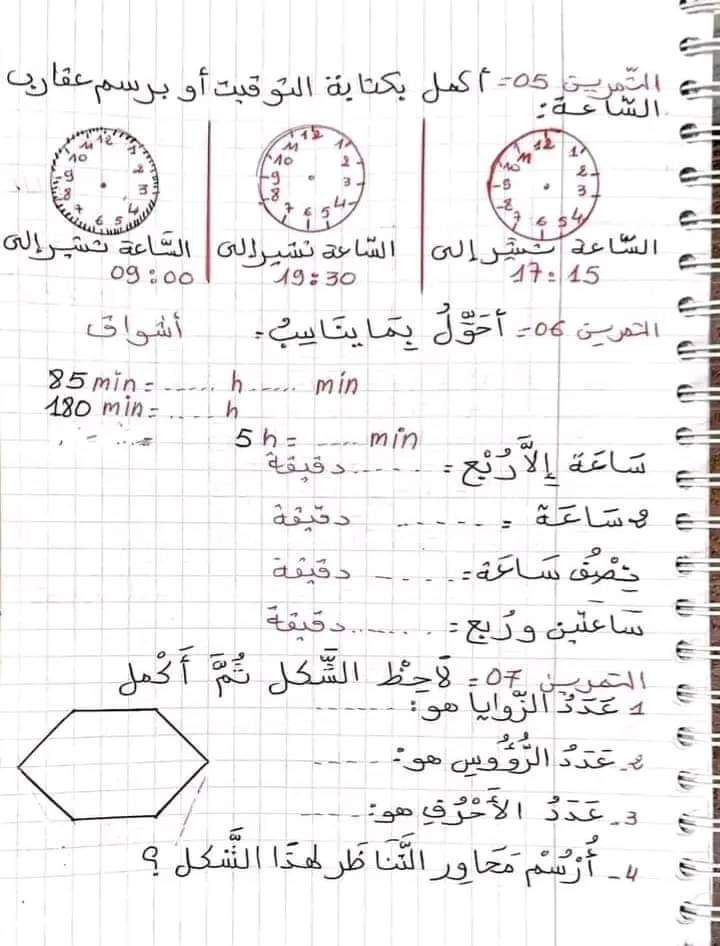 التّمرين 05= أكمل بكتابة التوقيت أو برسم عقارب
السّاعة:
12 1 2 3 4 5 6 7 8 9 10 11
12 1 2 3 4 5 6 7 8 9 10 11
12 1 2 3 4 5 6 7 8 9 10 11
السّاعة تشير إلى
17:15
السّاعة تشير إلى
19:30
السَّاعة تشير إلى
09:00
التمرين 06= أحَوِّلُ بِمَا يناسِبُ= أشواق
85 min = ...... h ...... min
180 min = ..... h
5 h = ..... min
سَاعَة إِلاَّ رُبْع = ....... دقيقة
2 سَاعَة = ...... دقيقة
نِصْفُ سَاعَة = ..... دقيقة
سَاعَتَين ورُبع = ....... دقيقة
التمرين 07= لَاحِظْ الشَّكل ثُمَّ أَكْمل
1 عَدَدُ الزَّوايا هو: ......
2- عَدَدُ الرُّؤُوسِ هو: ......
3- عَدَدُ الأَحْرُفِ هو: ......
4- أُرْسُمْ مَحَاوِر التَّنَاظَر لهذَا الشَّكل ؟